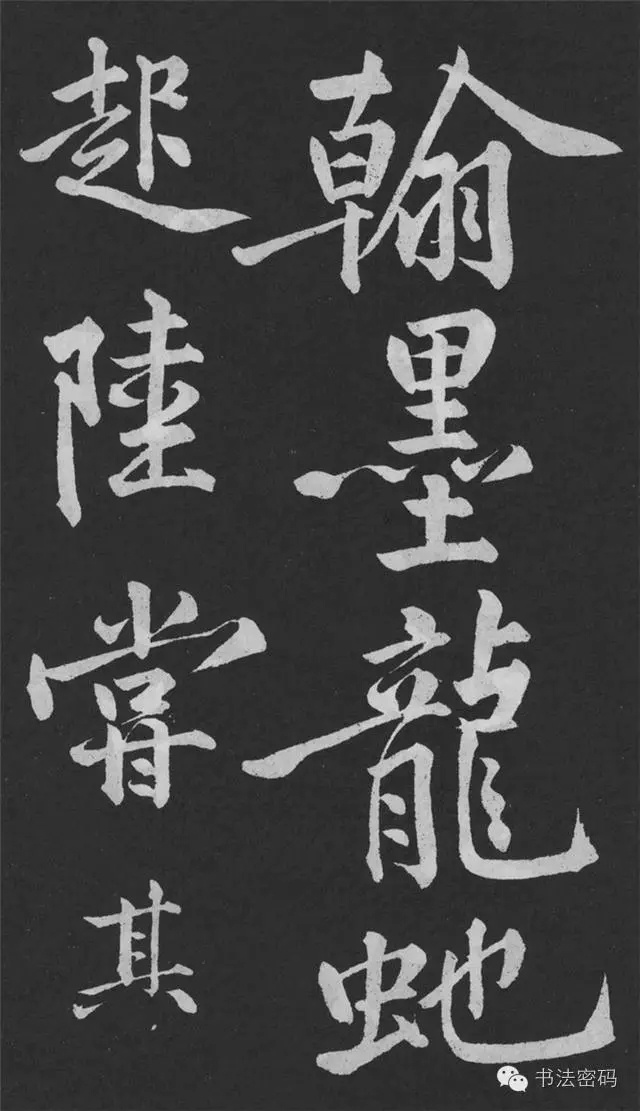 翰墨龍虵
起陸嘗其
书法密码